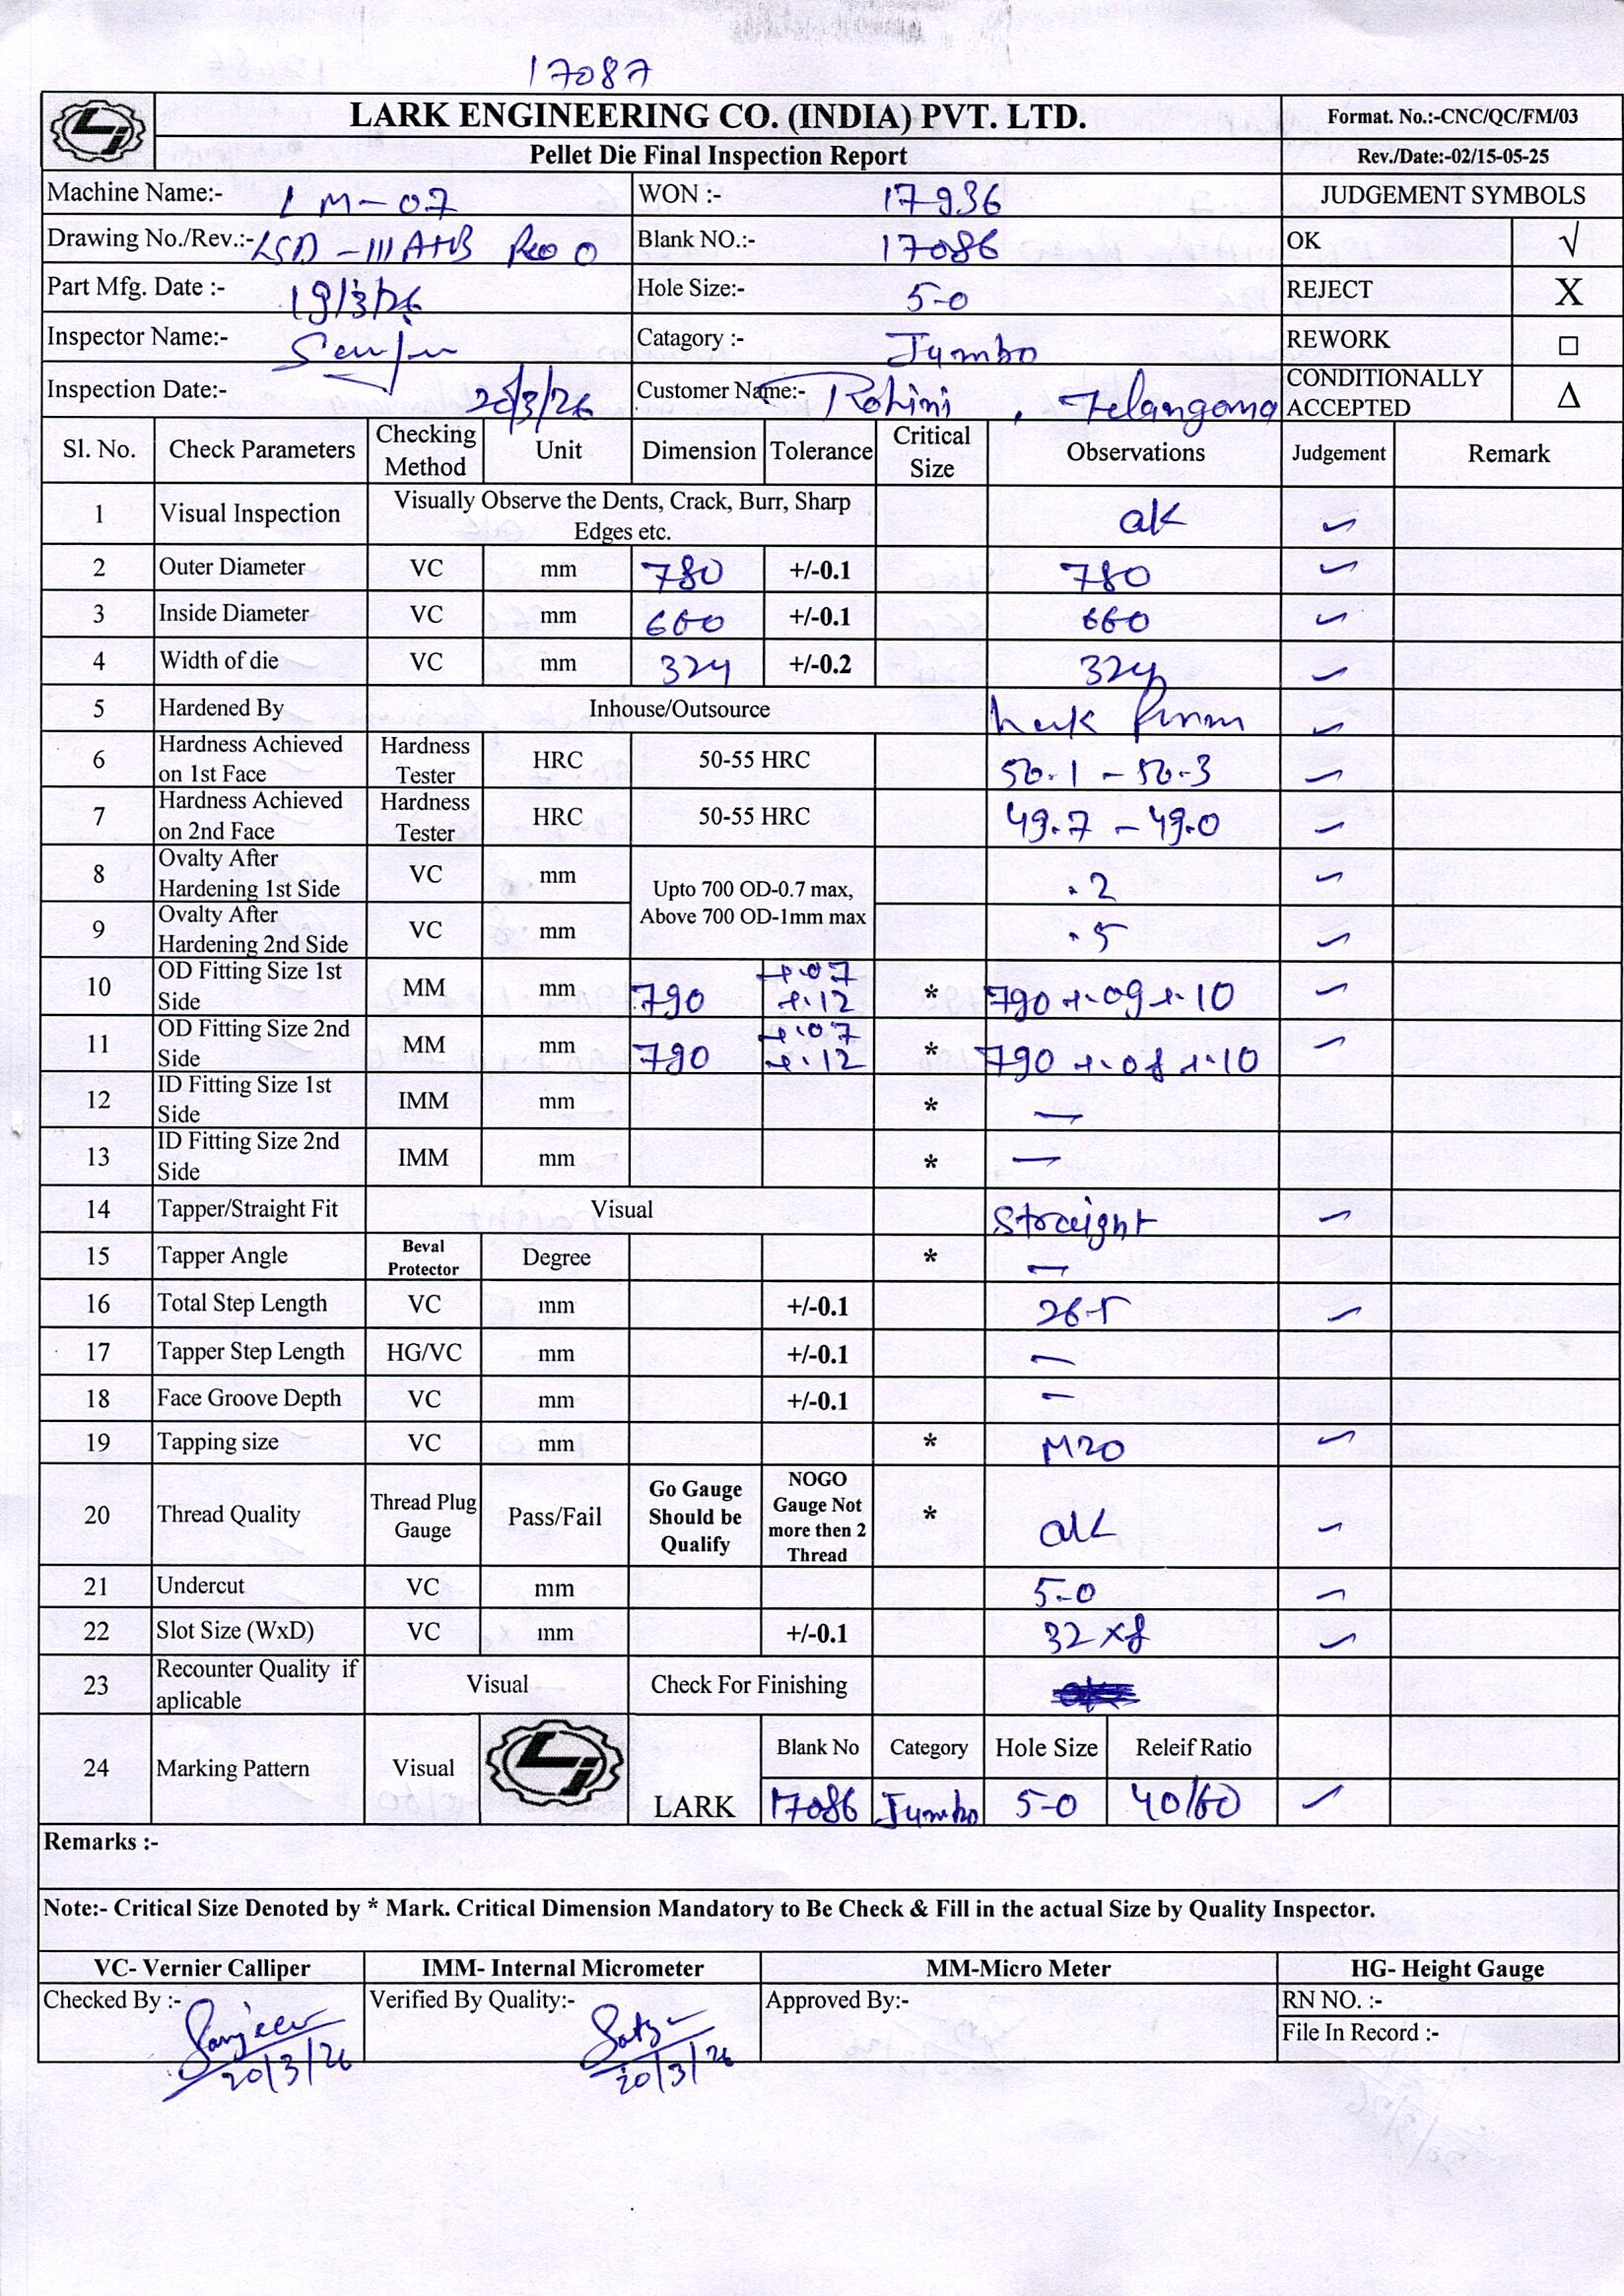 17087
LARK ENGINEERING CO. (INDIA) PVT. LTD. Format. No.:-CNC/QC/FM/03
Pellet Die Final Inspection Report Rev./Date:-02/15-05-25
Machine Name:- LM-07 WON :- 17936 JUDGEMENT SYMBOLS
Drawing No./Rev.:- LSD-111 A+B Rev 0 Blank NO.:- 17086 OK √
Part Mfg. Date :- 19/3/26 Hole Size:- 5-0 REJECT X
Inspector Name:- Catagory :- Jumbo REWORK □
Inspection Date:- 20/3/26 Customer Name:- Rohini, Telangana CONDITIONALLY ACCEPTED Δ
Sl. No. Check Parameters Checking Method Unit Dimension Tolerance Critical Size Observations Judgement Remark
1 Visual Inspection Visually Observe the Dents, Crack, Burr, Sharp Edges etc. ok ✓
2 Outer Diameter VC mm 780 +/-0.1 780 ✓
3 Inside Diameter VC mm 660 +/-0.1 660 ✓
4 Width of die VC mm 324 +/-0.2 324 ✓
5 Hardened By Inhouse/Outsource ✓
6 Hardness Achieved on 1st Face Hardness Tester HRC 50-55 HRC 50.1 - 50.3 ✓
7 Hardness Achieved on 2nd Face Hardness Tester HRC 50-55 HRC 49.7 - 49.0 ✓
8 Ovalty After Hardening 1st Side VC mm Upto 700 OD-0.7 max, Above 700 OD-1mm max .2 ✓
9 Ovalty After Hardening 2nd Side VC mm .5 ✓
10 OD Fitting Size 1st Side MM mm 790 +.07 +.12 * 790 +.09 +.10 ✓
11 OD Fitting Size 2nd Side MM mm 790 +.07 +.12 * 790 +.08 +.10 ✓
12 ID Fitting Size 1st Side IMM mm * —
13 ID Fitting Size 2nd Side IMM mm * —
14 Tapper/Straight Fit Visual Straight ✓
15 Tapper Angle Beval Protector Degree * —
16 Total Step Length VC mm +/-0.1 26.5 ✓
17 Tapper Step Length HG/VC mm +/-0.1 —
18 Face Groove Depth VC mm +/-0.1 —
19 Tapping size VC mm * M20 ✓
20 Thread Quality Thread Plug Gauge Pass/Fail Go Gauge Should be Qualify NOGO Gauge Not more then 2 Thread * ok ✓
21 Undercut VC mm 5-0 ✓
22 Slot Size (WxD) VC mm +/-0.1 32 x 8 ✓
23 Recounter Quality if aplicable Visual Check For Finishing
24 Marking Pattern Visual LARK Blank No Category Hole Size Releif Ratio
17086 Jumbo 5-0 40/60 ✓
Remarks :-
Note:- Critical Size Denoted by * Mark. Critical Dimension Mandatory to Be Check & Fill in the actual Size by Quality Inspector.
VC- Vernier Calliper IMM- Internal Micrometer MM-Micro Meter HG- Height Gauge
Checked By :- Sanjeev 20/3/26 Verified By Quality:- 20/3/26 Approved By:- RN NO. :-
File In Record :-